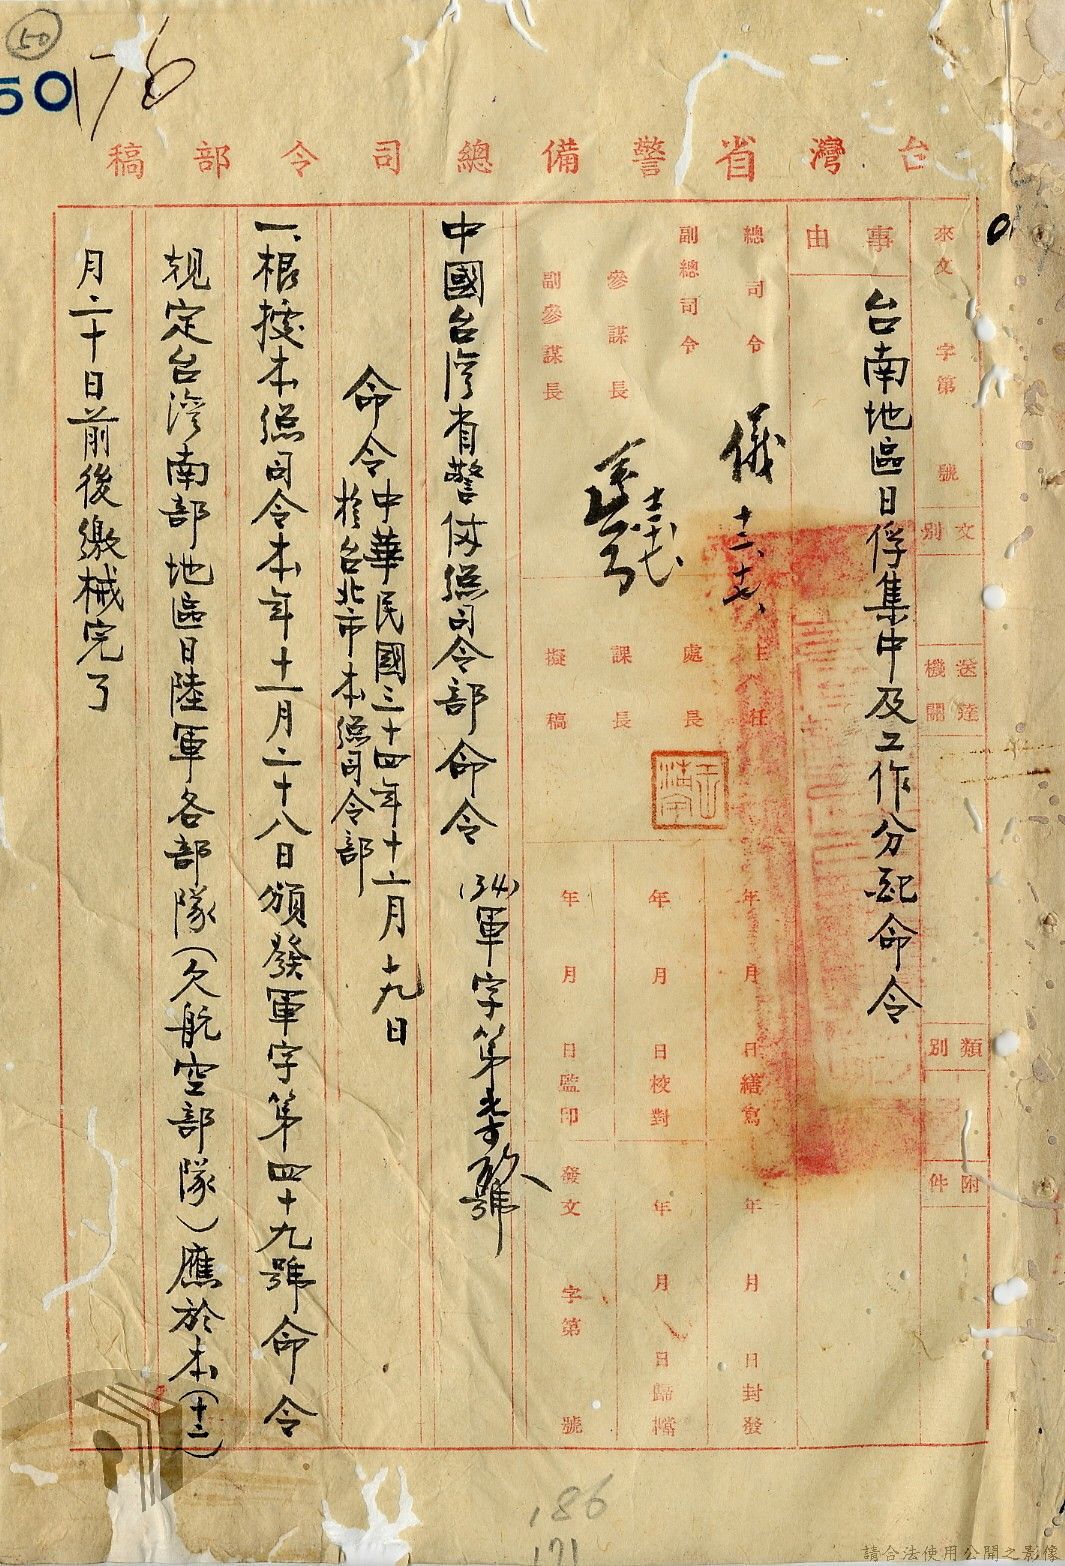 50
50
176
台灣省警備總司令部稿
來文 字第 號
文別
送達機關
類別
附件
事由
台南地區日俘集中及工作分配命令
總司令
儀 十二、十七、
副總司令
參謀長
十二、十七
副參謀長
主任
處長
課長
擬稿
年 月 日繕寫
年 月 日校對
年 月 日監印
年 月 日封發
年 月 日歸檔
發文 字第 號
中國台灣省警備總司令部命令 (34)軍字第 號
命令 中華民國三十四年十二月十九日
於台北市本總司令部
一、根據本總司令本年十一月二十八日頒發軍字第四十九號命令
規定台灣南部地區日陸軍各部隊(欠航空部隊)應於本(十二)
月二十日前後繳械完了
186
171
請合法使用公開之影像